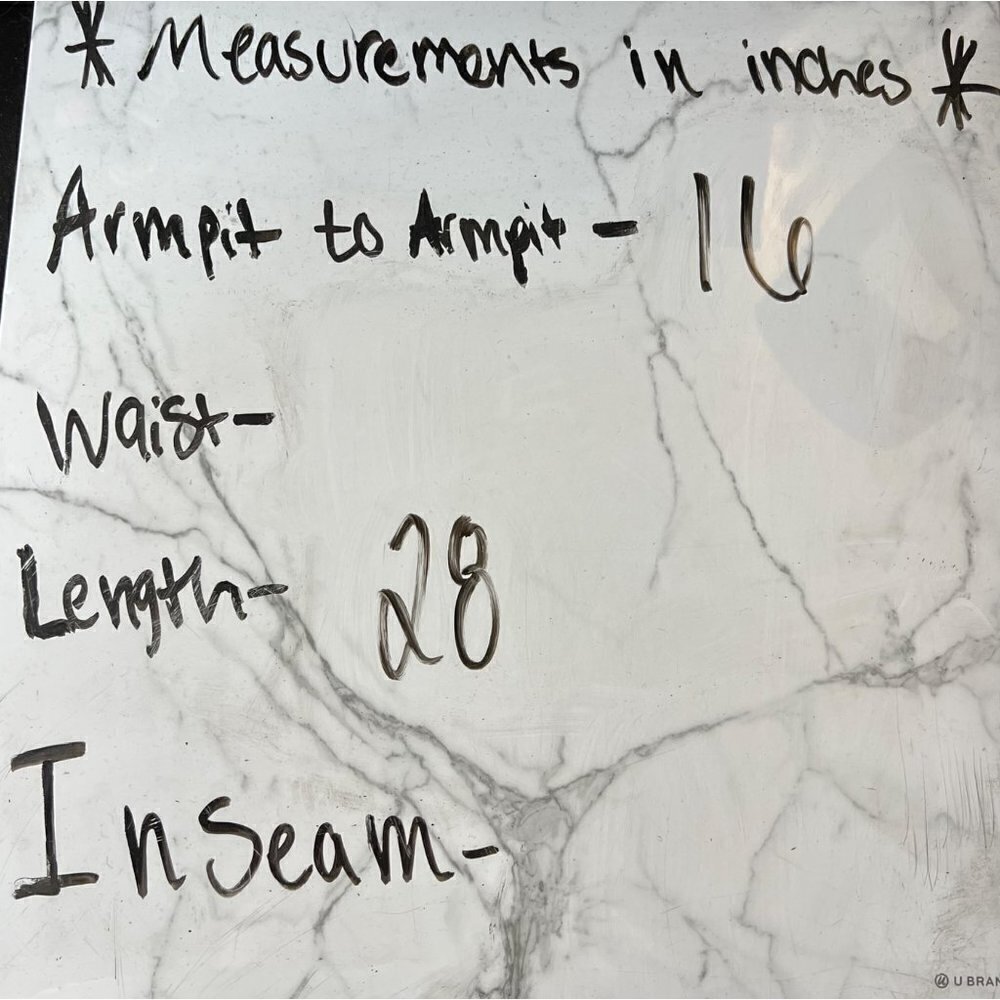 * Measurements in inches *
Armpit to Armpit - 16
Waist-
Length- 28
Inseam-
U BRAN